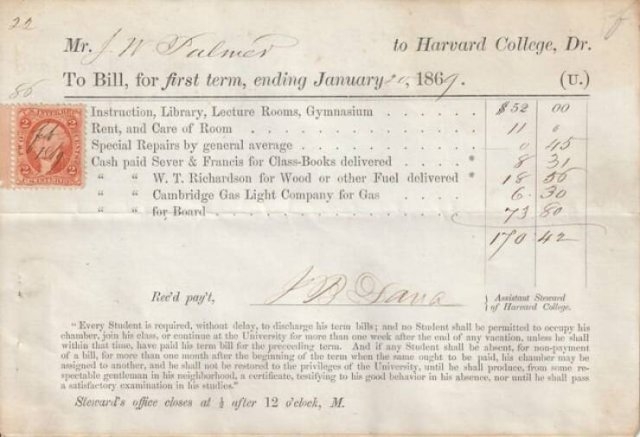 22
Mr. J W Palmer to Harvard College, Dr.
To Bill, for first term, ending January 20, 1869. (U.)
86
Instruction, Library, Lecture Rooms, Gymnasium . . . . . . $52 00
Rent, and Care of Room . . . . . . . . . . . . 11 0
Special Repairs by general average . . . . . . . . . 0 45
Cash paid Sever & Francis for Class-Books delivered . . . . * 8 31
" " W. T. Richardson for Wood or other Fuel delivered * 18 56
" " Cambridge Gas Light Company for Gas . . . . . 6 30
" " for Board . . . . . . . . . . . . . 73 80
170 42
2 2
2 2
Rec'd pay't, J B Dana } Assistant Steward
} of Harvard College.
"Every Student is required, without delay, to discharge his term bills; and no Student shall be permitted to occupy his
chamber, join his class, or continue at the University for more than one week after the end of any vacation, unless he shall
within that time, have paid his term bill for the preceeding term. And if any Student shall be absent, for non-payment
of a bill, for more than one month after the beginning of the term when the same ought to be paid, his chamber may be
assigned to another, and he shall not be restored to the privileges of the University, until he shall produce, from some re-
spectable gentleman in his neighborhood, a certificate, testifying to his good behavior in his absence, nor until he shall pass
a satisfactory examination in his studies."
Steward's office closes at ½ after 12 o'clock, M.